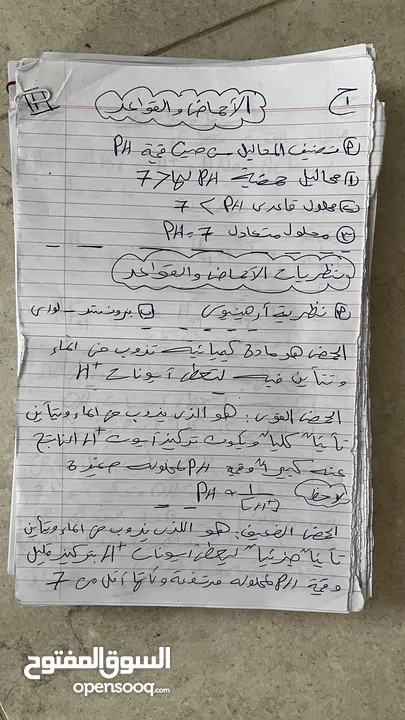 الأحماض والقواعد
تصنيف المحاليل من حيث قيمة PH
① محاليل حمضية PH لها < 7
② محلول قاعدي PH > 7
③ محلول متعادل PH = 7
نظريات الأحماض والقواعد
نظرية أرهينيوس برونستد - لوري
الحمض هو مادة كيميائية تذوب في الماء
وتتأين فيه لتعطي أيونات H+
الحمض القوي: هو الذي يذوب في الماء ويتأين
تأيناً كلياً ويكون تركيز أيون H+ الناتج
عنه كبيراً وقيمة PH لمحلوله صغيرة
لاحظ PH α 1/[H+]
الحمض الضعيف: هو الذي يذوب في الماء ويتأين
تأيناً جزئياً ليعطي أيونات H+ بتركيز قليل
وقيمة PH لمحلوله مرتفعة ولكنها أقل من 7
السوق المفتوح
opensooq.com